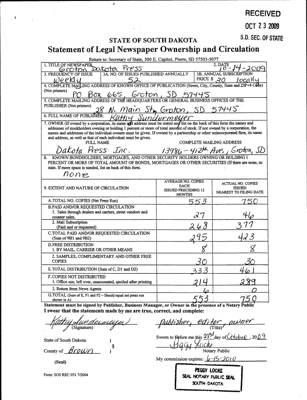 RECEIVED
OCT 23 2009
S.D. SEC. OF STATE
STATE OF SOUTH DAKOTA
Statement of Legal Newspaper Ownership and Circulation
Return to: Secretary of State, 500 E. Capitol, Pierre, SD 57501-5077
1. TITLE OF NEWSPAPER 2. DATE
Groton Dakota Press 10-14-2009
3. FREQUENCY OF ISSUE 3A. NO. OF ISSUES PUBLISHED ANNUALLY 3B. ANNUAL SUBSCRIPTION PRICE $ 20 locally
Weekly 52
4. COMPLETE MAILING ADDRESS OF KNOWN OFFICE OF PUBLICATION (Street, City, County, State and ZIP+4 Code)
(Not printers) PO Box 665, Groton, SD 57445
5. COMPLETE MAILING ADDRESS OF THE HEADQUARTERS OR GENERAL BUSINESS OFFICES OF THE
PUBLISHER (Not printers) 28 N. Main St, Groton, SD 57445
6. FULL NAME OF PUBLISHER: Kathy Sundermeyer
7. OWNER (If owned by a corporation, its name and address must be stated and list on the back of this form the names and
addresses of stockholders owning or holding 1 percent or more of total amount of stock. If not owned by a corporation, the
names and addresses of the individual owners must be given. If owned by a partnership or other unincorporated firm, its name
and address, as well as that of each individual must be given.
FULL NAME COMPLETE MAILING ADDRESS
Dakota Press Inc. Groton, SD
8. KNOWN BONDHOLDERS, MORTGAGES, AND OTHER SECURITY HOLDERS OWNING OR HOLDING 1
PERCENT OR MORE OF TOTAL AMOUNT OF BONDS, MORTGAGES OR OTHER SECURITIES (If there are none, so
state. If more space is needed, list on back of this form.
none
9. EXTENT AND NATURE OF CIRCULATION AVERAGE NO. COPIES EACH ISSUE PRECEDING 12 MONTHS ACTUAL NO. COPIES ISSUED NEAREST TO FILING DATE
A. TOTAL NO. COPIES (Net Press Run) 553 750
B. PAID AND/OR REQUESTED CIRCULATION
1. Sales through dealers and carriers, street vendors and counter sales. 27 46
2. Mail Subscription (Paid and or requested) 268 377
C. TOTAL PAID AND/OR REQUESTED CIRCULATION (Sum of 9B1 and 9B2) 295 423
D. FREE DISTRIBUTION
1. BY MAIL, CARRIER OR OTHER MEANS 8 8
2. SAMPLES, COMPLIMENTARY AND OTHER FREE COPIES 30 30
E. TOTAL DISTRIBUTION (Sum of C, D1 and D2) 333 461
F. COPIES NOT DISTRIBUTED
1. Office use, left over, unaccounted, spoiled after printing 214 289
2. Return from News Agents 6 0
G. TOTAL (Sum of E, F1 and F2 - Should equal net press run shown in A) 553 750
Statement must be signed by Publisher, Business Manager, or Owner in the presence of a Notary Public
I swear that the statements made by me are true, correct, and complete:
Kathy Sundermeyer publisher, editor, owner
(Signature) (Title)
State of South Dakota )
County of Brown )
Sworn to before me this day of October, 2009
Peggy Locke
Notary Public
(Seal)
My commission expires: 6-15-2011
Form: SOS REC 051 7/2004
PEGGY LOCKE
SEAL NOTARY PUBLIC SEAL
SOUTH DAKOTA